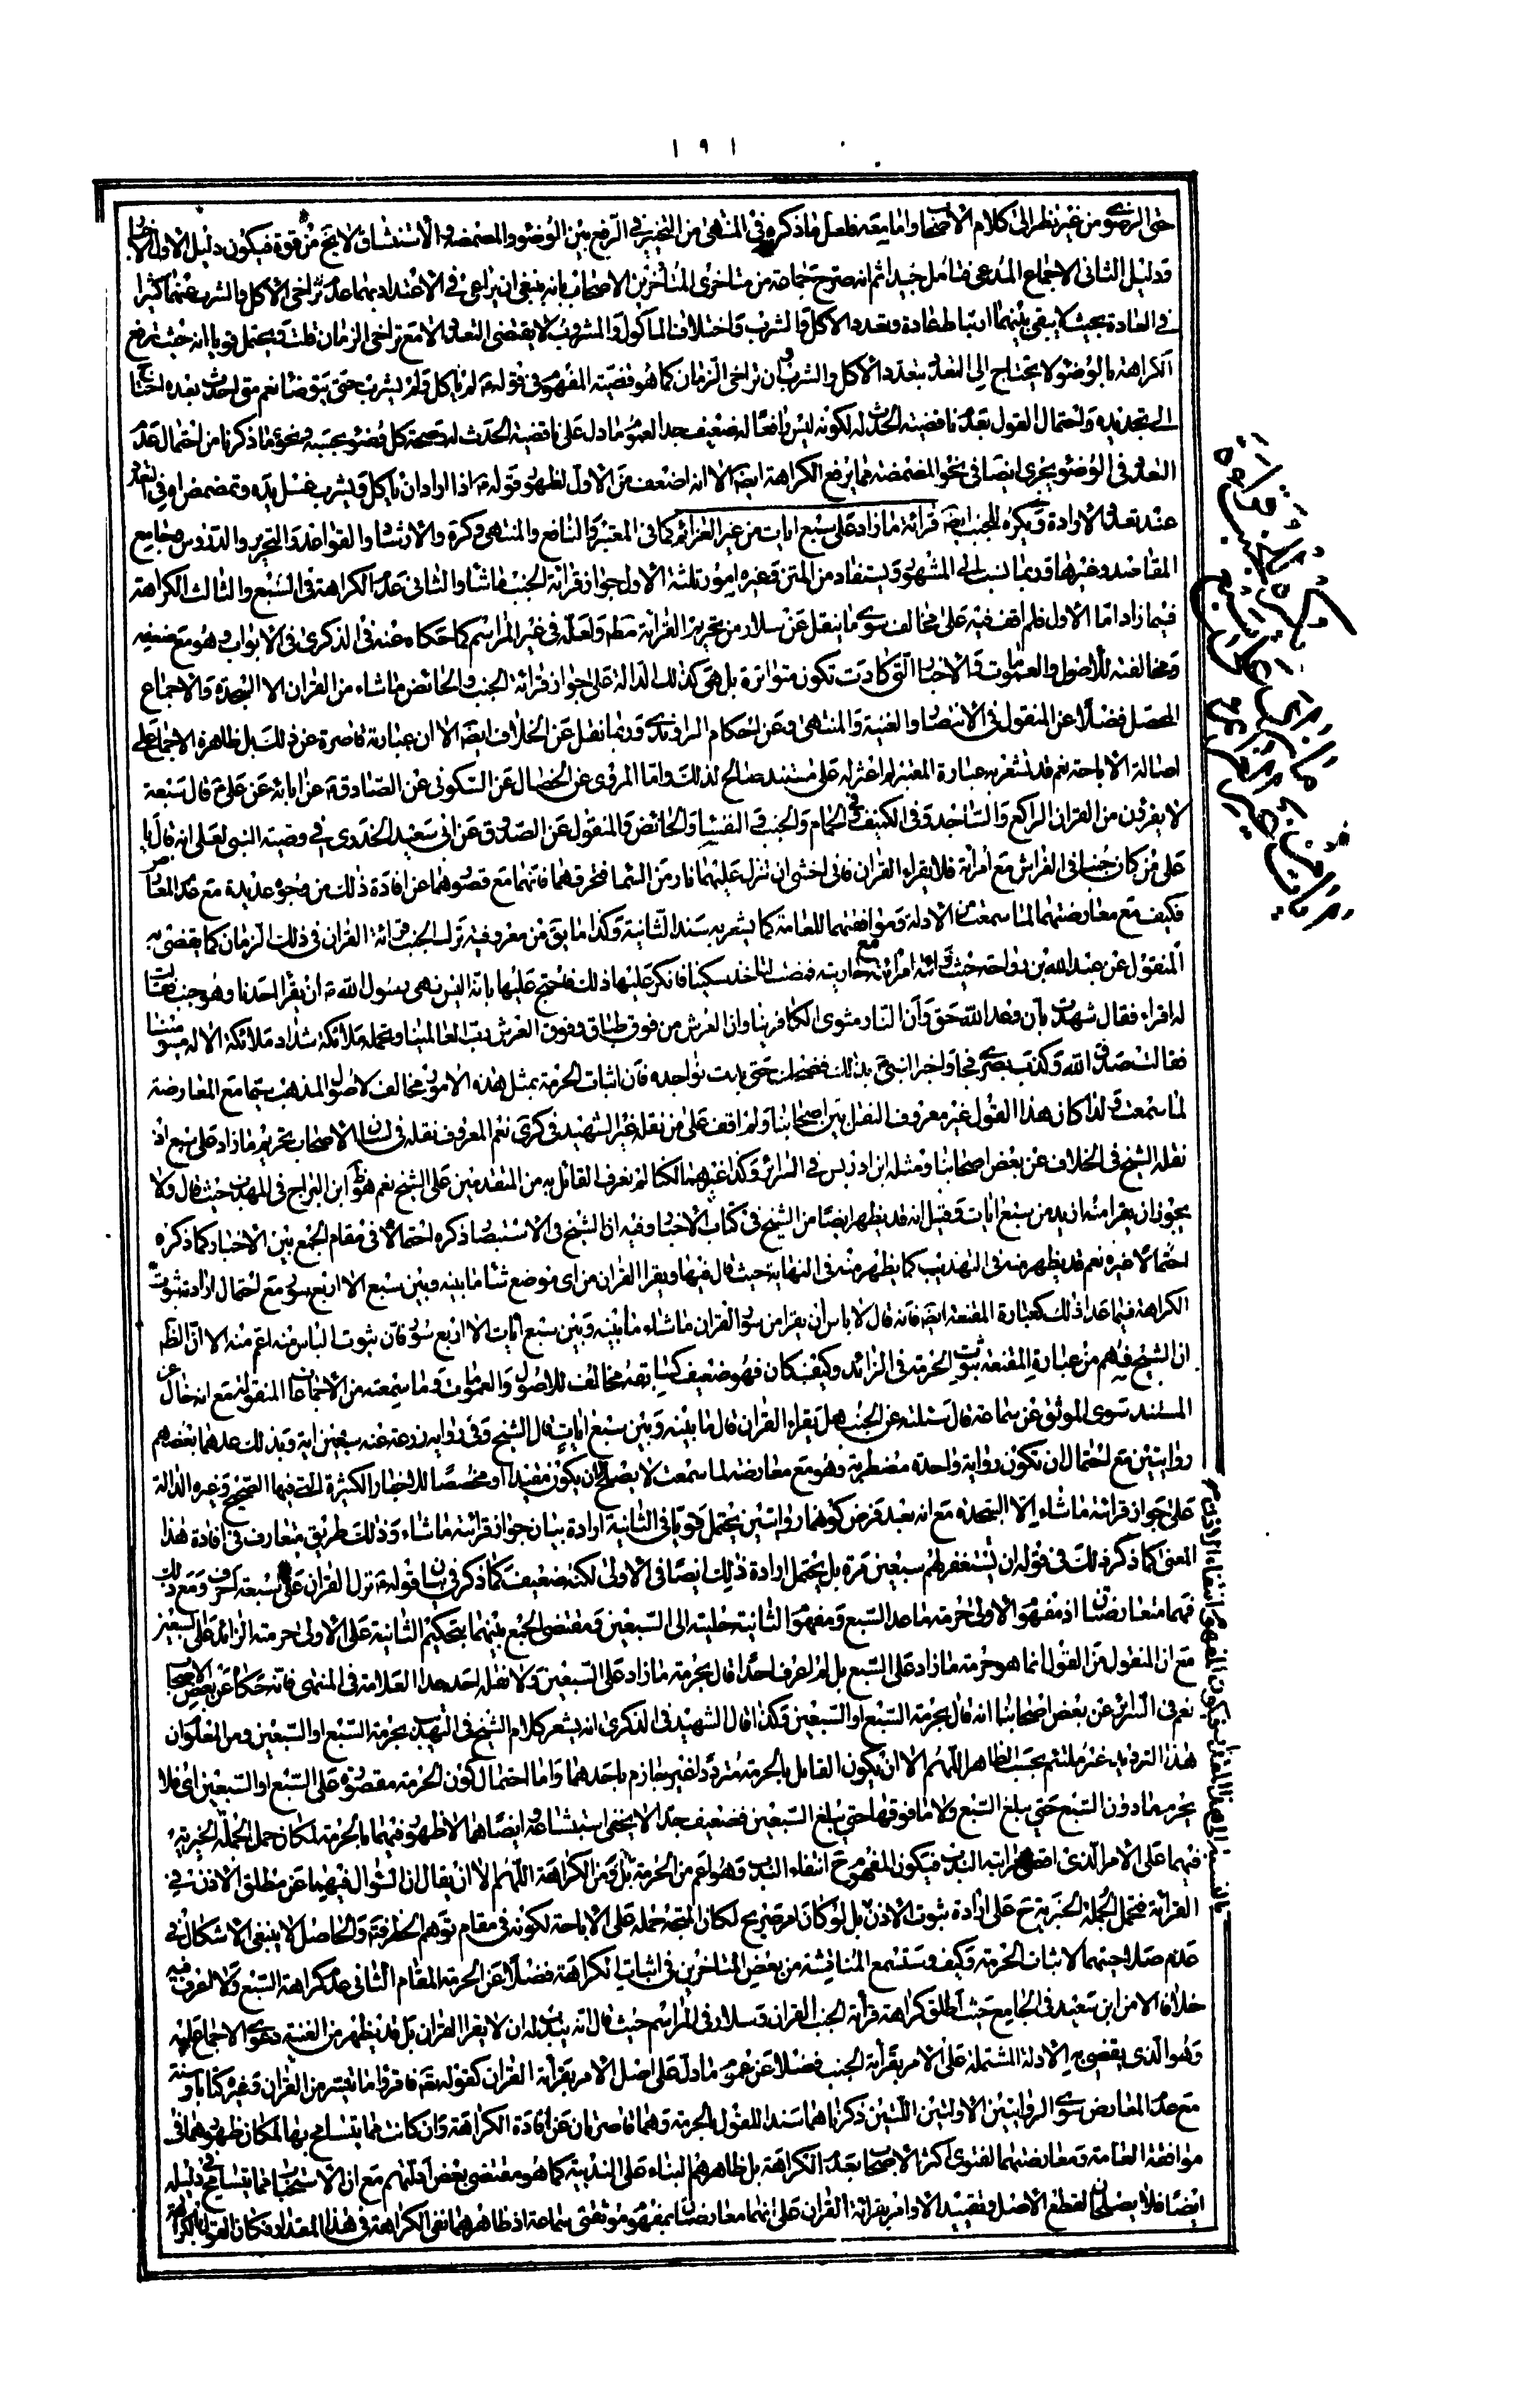 ١٩١
حتى الرضوي من غير نظر إلى كلام الأصحاب واما معه فلعل ما ذكره في المنتهى من التخيير في الرفع بين الوضوء والمضمضة والاستنشاق لا يخ من قوة فيكون دليل الأول
ودليل الثاني الاجماع المدعى فتأمل جيدا ثم انه صرح جماعة من متاخري المتأخرين الاصحاب بانه ينبغي ان يراعى في الاعتداد بهما عدم تراخي الأكل والشرب عنهما كثيرا
في العادة بحيث لا يبقى بينهما ارتباط عادة وتعدد الأكل والشرب واختلاف المأكول والمشروب لا يقتضى التعدد الا مع تراخي الزمان قلت قد يحتمل قويا انه حيث ترفع
الكراهة بالوضوء لا يحتاج إلى التعدد بتعدد الأكل والشرب وان تراخى الزمان كما هو قضية المفهوم في قوله ع لم يأكل ولم يشرب حتى يتوضأ نعم متى احدث بعده احتاج
إلى تجديده واحتمال القول بعدم ناقضية الحدث له لكونه ليس رافعا له ضعيف جدا لعموم ما دل على ناقضية الحدث له وصحة كل وضوء بحسبه ونحو ما ذكرنا من احتمال عدم
التعدد في الوضوء يجري ايضا في نحو المضمضة مما يرفع الكراهة ايضا الا انه اضعف من الأول لظهور قوله ع اذا اراد ان يأكل ويشرب غسل يده وتمضمض في التعدد
عند تعدد الارادة ويكره للجنب ايضا قرائة ما زاد على سبع ايات من غير العزائم كما في المعتبر والنافع والمنتهى وكره والارشاد والقواعد والتحرير والدروس وجامع
المقاصد وغيرها وربما نسب إلى المشهور ويستفاد من المتن وغيره امور ثلثة الأول جواز قرائة الجنب ما شاء والثاني عدم الكراهة في السبع والثالث الكراهة
فيما زاد اما الأول فلم اقف فيه على مخالف سوى ما ينقل عن سلار من تحريم القرائة مطلقا ولعله في غير المراسم كما حكاه عنه في الذكرى في الابواب وهو مع ضعفه
ومخالفته للاصول والعمومات والاخبار التي كادت تكون متواترة بل هي كذلك الدالة على جواز قرائة الجنب والحائض ما شاء من القران الا السجدة والاجماع
المحصل فضلا عن المنقول في الانتصار والغنية والمنتهى وعن احكام الراوندي وربما نقل عن الخلاف ايضا الا ان عبارته قاصرة عن ذلك بل ظاهره الاجماع على
اصالة الاباحة نعم قد تشعر به عبارة المعتبر لم اعثر له على مستند صالح لذلك واما المروي عن الخصال عن السكوني عن الصادق ع عن ابائه عن علي ع قال سبعة
لا يقرؤن من القران الراكع والساجد وفي الكنيف وفي الحمام والجنب والنفساء والحائض والمنقول عن الصدوق عن ابي سعيد الخدري في وصية النبي لعلي انه قال يا
علي من كان جنبا في الفراش مع امرأته فلا يقراء القران فاني اخشى ان تنزل عليهما نار من السماء فتحرقهما فانهما مع قصورهما عن افادة ذلك من وجوه عديدة مع عدم المعارض
فكيف مع معارضتهما لما سمعت من الادلة وموافقتهما للعامة كما يشعر به سند الثانية وكذا ما بقي من معروفية ترك الجنب قرائة القران في ذلك الزمان كما يقضي به
المنقول عن عبد الله بن رواحة حيث رأته امرأته مع جاريته فمضت لتأخذ سكينا فانكر عليها ذلك فاحتج عليها بانه اليس نهى رسول الله ص ان يقرأ احدنا وهو جنب فقالت
له اقراء فقال شهدت بأن وعد الله حق وأن النار مثوى الكافرينا وان العرش من فوق طباق وفوق العرش رب العالمينا وتحمله ملائكة شداد ملائكة الاله مسومينا
فقالت صدق الله وكذب بصري فجاء واخبر النبي ص بذلك فضحك حتى بدت نواجده فان اثبات الحرمة بمثل هذه الامور مخالف لاصول المذهب سيما مع المعارضة
لما سمعت ولذا كان هذا القول غير معروف النقل بين اصحابنا ولم اقف على من نقله غير الشهيد في كرى نعم المعروف نقله في لسان الاصحاب تحريم ما زاد على سبع اذ
نقله الشيخ في الخلاف عن بعض اصحابنا ومثله ابن ادريس في السرائر وكذا غيرهما لكنا لم نعرف القائل به من المتقدمين على الشيخ نعم هو ظ ابن البراج في المهذب حيث قال ولا
يجوز ان يقرا منه ازيد من سبع ايات وقيل انه قد يظهر ايضا من الشيخ في كتاب الاخبار وفيه ان الشيخ في الاستبصار ذكره احتمالا في مقام الجمع بين الاخبار كما ذكره
احتمالا غيره نعم قد يظهر منه في التهذيب كما يظهر منه في النهاية حيث قال فيها ويقرا القران من اي موضع شاء ما بينه وبين سبع الا اربع سور مع احتمال ارادة ثبوت
الكراهة فيما عدا ذلك كعبارة المقنعة ايضا فانه قال لا باس ان يقرا من سور القران ما شاء ما بينه وبين سبع ايات الا اربع سور فان ثبوت الباس منه اعم منه الا ان الظ
ان الشيخ فهم من عبارة المقنعة ثبوت الحرمة في الزائد وكيف كان فهو ضعيف كسابقه مخالف للاصول والعمومات وما سمعته من الاجماعات المنقولة مع انه خال عن
المستند سوى الموثق عن سماعة قال سئلته عن الجنب هل يقراء القران قال ما بينه وبين سبع ايات قال الشيخ وفي رواية زرعة عنه سبعين اية وبذلك عدهما بعضهم
روايتين مع احتمال ان تكون رواية واحدة مضطربة وهو مع معارضته لما سمعت لا يصلح لان يكون مقيدا او مخصصا للاخبار الكثيرة التي فيها الصحيح وغيره الدالة
على جواز قرائة ما شاء الا السجدة مع انه بعد فرض كونهما روايتين يحتمل قويا في الثانية ارادة بيان جواز قرائة ما شاء وذلك طريق متعارف في افادة هذا
المعنى كما ذكر ذلك في قوله ان تستغفر لهم سبعين مرة بل يحتمل ارادة ذلك ايضا في الاولى لكنه ضعيف كما ذكر في بيان قوله ع نزل القران على سبعة احرف ومع ذلك
فهما متعارضتان اذ مفهوم الاولى حرمة ما عدا السبع ومفهوم الثانية حليته إلى السبعين ومقتضى الجمع بينهما بتحكيم الثانية على الاولى حرمة الزائد على السبعين
مع ان المنقول من القول انما هو حرمة ما زاد على السبع بل لم اعرف احدا قال بحرمة ما زاد على السبعين ولا نقله احد عدا العلامة في المنتهى فانه حكاه عن بعض الاصحاب
نعم في السرائر عن بعض اصحابنا انه قال بحرمة السبع او السبعين وكذا قال الشهيد في الذكرى انه يشعر كلام الشيخ في التهذيب بحرمة السبع او السبعين ومن المعلوم ان
هذا الترديد غير ملتئم بحسب الظاهر اللهم الا ان يكون القائل بالحرمة مترددا غير جازم باحدهما واما احتمال كون الحرمة مقصورة على السبع او السبعين اي فلا
يحرم ما دون السبع حتى يبلغ السبع ولا ما فوقها حتى يبلغ السبعين فضعيف جدا لا يخفى استبشاعه ايضا هما لا ظهور فيهما بالحرمة لمكان حمل الجملة الخبرية
فيهما على الامر الذي اقصى مراتبه الندب فيكون المفهوم ح انتفاء الندب وهو اعم من الحرمة بل ومن الكراهة اللهم الا ان يقال ان السؤال فيهما عن مطلق الاذن في
القرائة فتحمل الجملة الخبرية ح على ارادة ثبوت الاذن بل لو كان امر صريح لكان المتجه حمله على الاباحة لكونه في مقام توهم الحظر فيه والحاصل لا ينبغي الاشكال في
عدم صلاحيتهما لاثبات الحرمة وكيف وستسمع المناقشة من بعض المتاخرين في اثبات الكراهة فضلا عن الحرمة المقام الثاني عدم كراهة السبع ولا اعرف فيه
خلافا الا من ابن سعيد في الجامع حيث اطلق كراهة قرائة الجنب القران وسلار في المراسم حيث قال انه يندب له ان لا يقرا القران بل قد يظهر من الغنية دعوى الاجماع عليه
وهو الذي يقضي به الادلة المشتملة على الامر بقرأئة الجنب فضلا عن عموم ما دل على اصل الامر بقرأئة القران كقوله تعم فاقرؤا ما تيسر من القران وغيره كتابا وسنة
مع عدم المعارض سوى الروايتين الاوليتين اللتين ذكرناهما سندا للقول بالحرمة وهما قاصرتان عن افادة الكراهة وان كانت مما يتسامح بها لمكان ظهورهما في
موافقة العامة ومعارضتهما لفتوى اكثر الاصحاب بعدم الكراهة بل ظاهرهم البناء على الندبية كما هو مقتضى بعض ادلتهم مع ان الاستحباب مما يتسامح في دليله
ايضا فلا يصلحان لقطع الاصل وتقييد الاوامر بقرائة القران على انهما معارضتان بمفهوم موثقتي سماعة اذ ظاهرهما نفي الكراهة في هذا المقدار وكان القول بالكراهة